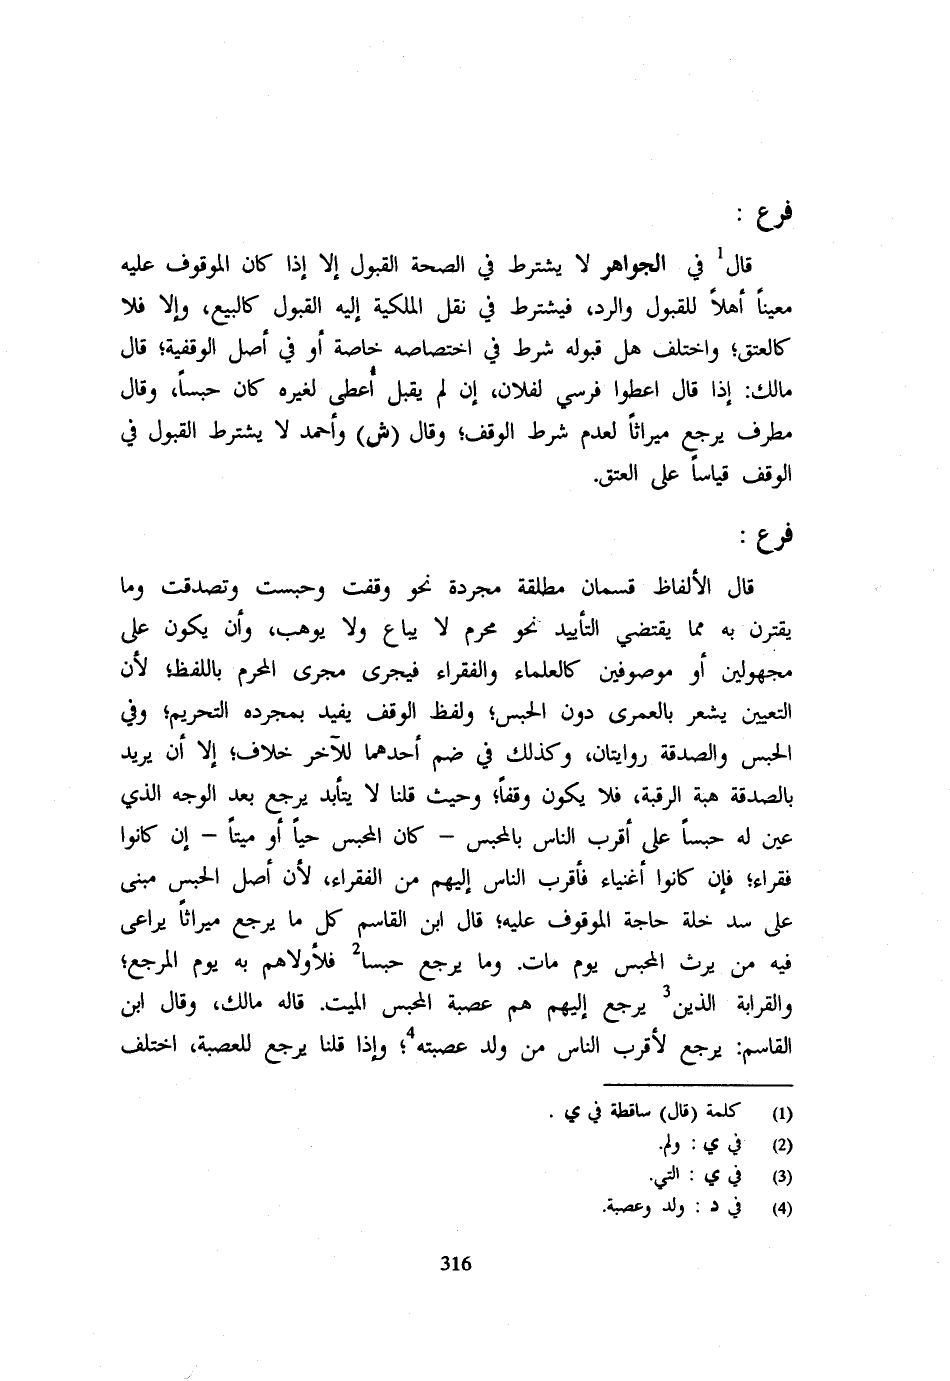 فرع :
قال1 في الجواهر لا يشترط في الصحة القبول إلا إذا كان الموقوف عليه
معيناً أهلاً للقبول والرد، فيشترط في نقل الملكية إليه القبول كالبيع، وإلا فلا
كالعتق؛ واختلف هل قبوله شرط في اختصاصه خاصة أو في أصل الوقفية؛ قال
مالك: إذا قال اعطوا فرسي لفلان، إن لم يقبل أعطى لغيره كان حبساً، وقال
مطرف يرجع ميراثاً لعدم شرط الوقف؛ وقال (ش) وأحمد لا يشترط القبول في
الوقف قياساً على العتق.
فرع :
قال الألفاظ قسمان مطلقة مجردة نحو وقفت وحبست وتصدقت وما
يقترن به مما يقتضي التأييد نحو محرم لا يباع ولا يوهب، وأن يكون على
مجهولين أو موصوفين كالعلماء والفقراء فيجرى مجرى المحرم باللفظ؛ لأن
التعيين يشعر بالعمرى دون الحبس؛ ولفظ الوقف يفيد بمجرده التحريم؛ وفي
الحبس والصدقة روايتان، وكذلك في ضم أحدهما للآخر خلاف؛ إلا أن يريد
بالصدقة هبة الرقبة، فلا يكون وقفاً؛ وحيث قلنا لا يتأبد يرجع بعد الوجه الذي
عين له حبساً على أقرب الناس بالمحبس – كان المحبس حياً أو ميتاً – إن كانوا
فقراء؛ فإن كانوا أغنياء فأقرب الناس إليهم من الفقراء، لأن أصل الحبس مبنى
على سد خلة حاجة الموقوف عليه؛ قال ابن القاسم كل ما يرجع ميراثاً يراعى
فيه من يرث المحبس يوم مات. وما يرجع حبسا2 فلأولاهم به يوم المرجع؛
والقرابة الذين3 يرجع إليهم هم عصبة المحبس الميت. قاله مالك، وقال ابن
القاسم: يرجع لأقرب الناس من ولد عصبته4؛ وإذا قلنا يرجع للعصبة، اختلف
(1) كلمة (قال) ساقطة في ي .
(2) في ي : ولم.
(3) في ي : التي.
(4) في د : ولد وعصبة.
316